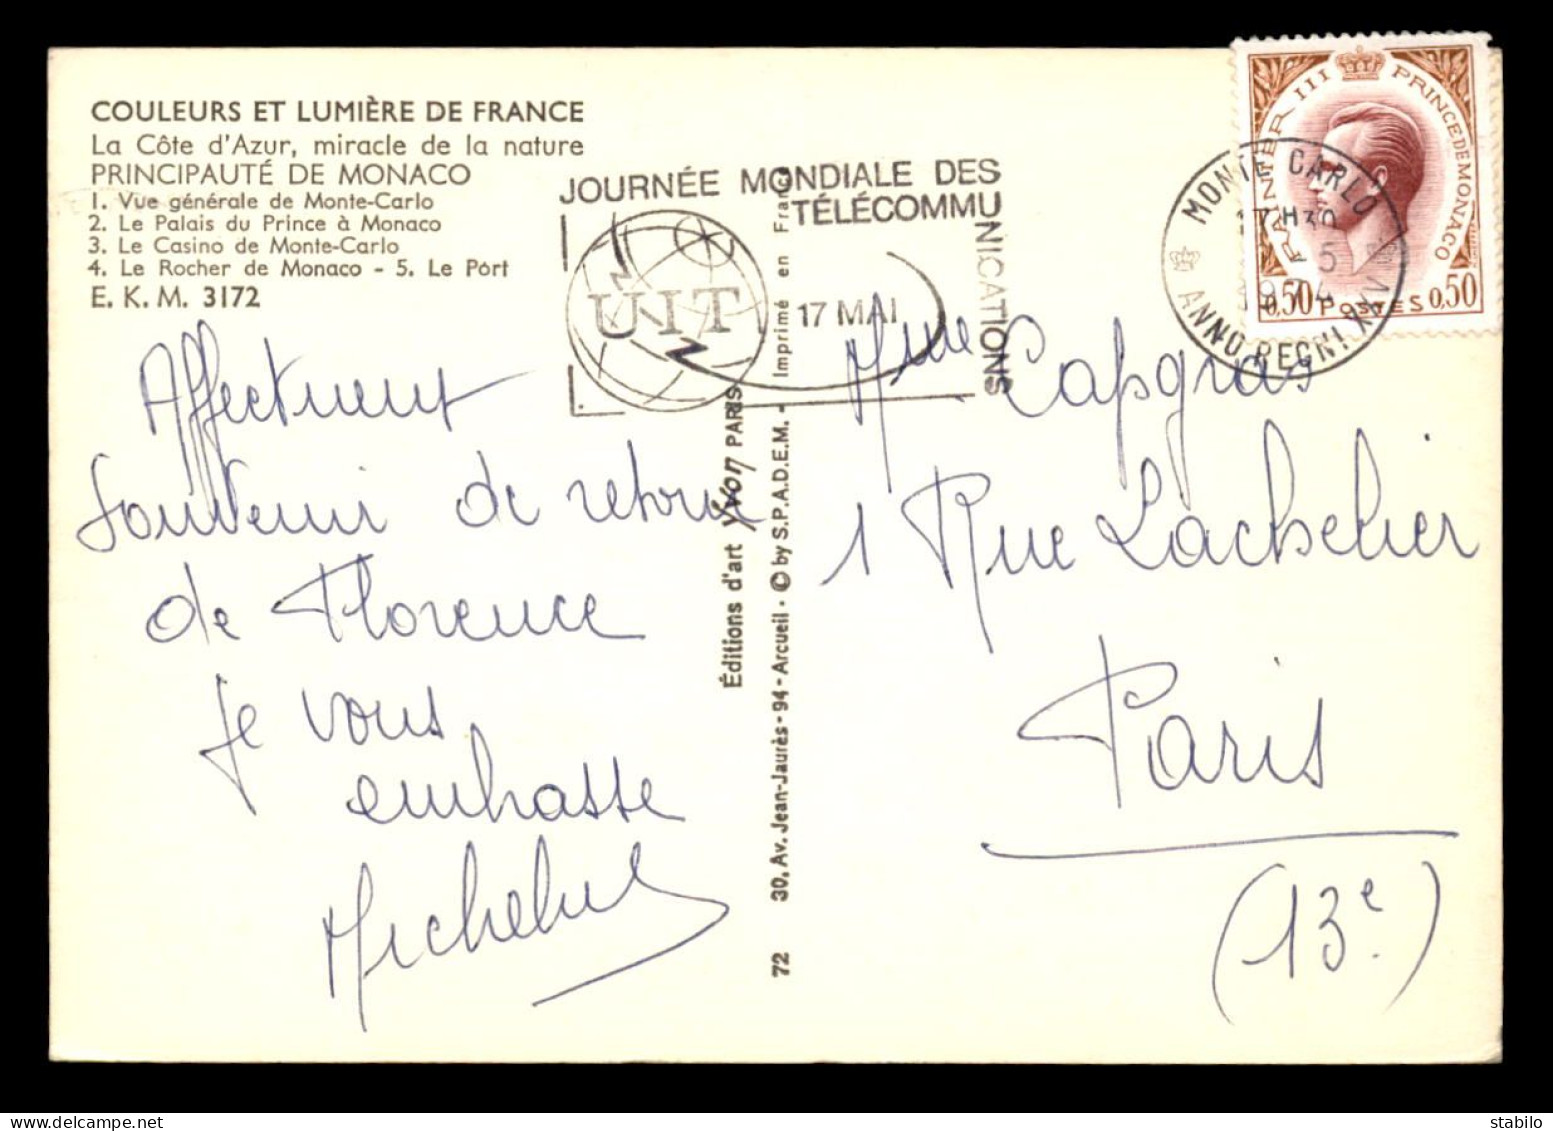 COULEURS ET LUMIÈRE DE FRANCE
La Côte d'Azur, miracle de la nature
PRINCIPAUTÉ DE MONACO
1. Vue générale de Monte-Carlo
2. Le Palais du Prince à Monaco
3. Le Casino de Monte-Carlo
4. Le Rocher de Monaco - 5. Le Port
E. K. M. 3172
Affectueux
souvenir de retour
de Florence
je vous
embrasse
JOURNÉE MONDIALE DES
TÉLÉCOMMU
NICATIONS
UIT
17 MAI
Éditions d'art Yvon PARIS
72 30, Av. Jean-Jaurès - 94 - Arcueil - © by S.P.A.D.E.M. - Imprimé en France
RAINIER III PRINCE DE MONACO
0,50 POSTES 0,50
MONTE CARLO
17H30
5
1974
ANNO REGNI XXV
Mme Capgras
1 Rue Lachelier
Paris
(13e)
delcampe.net
stabilo